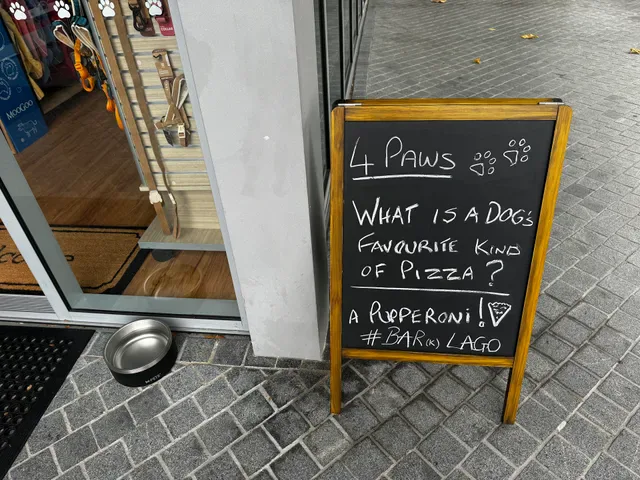 4 PAWS
WHAT IS A DOG'S
FAVOURITE KIND
OF PIZZA?
A PUPPERONI!
#BAR(K) LAGO
MOOGOO